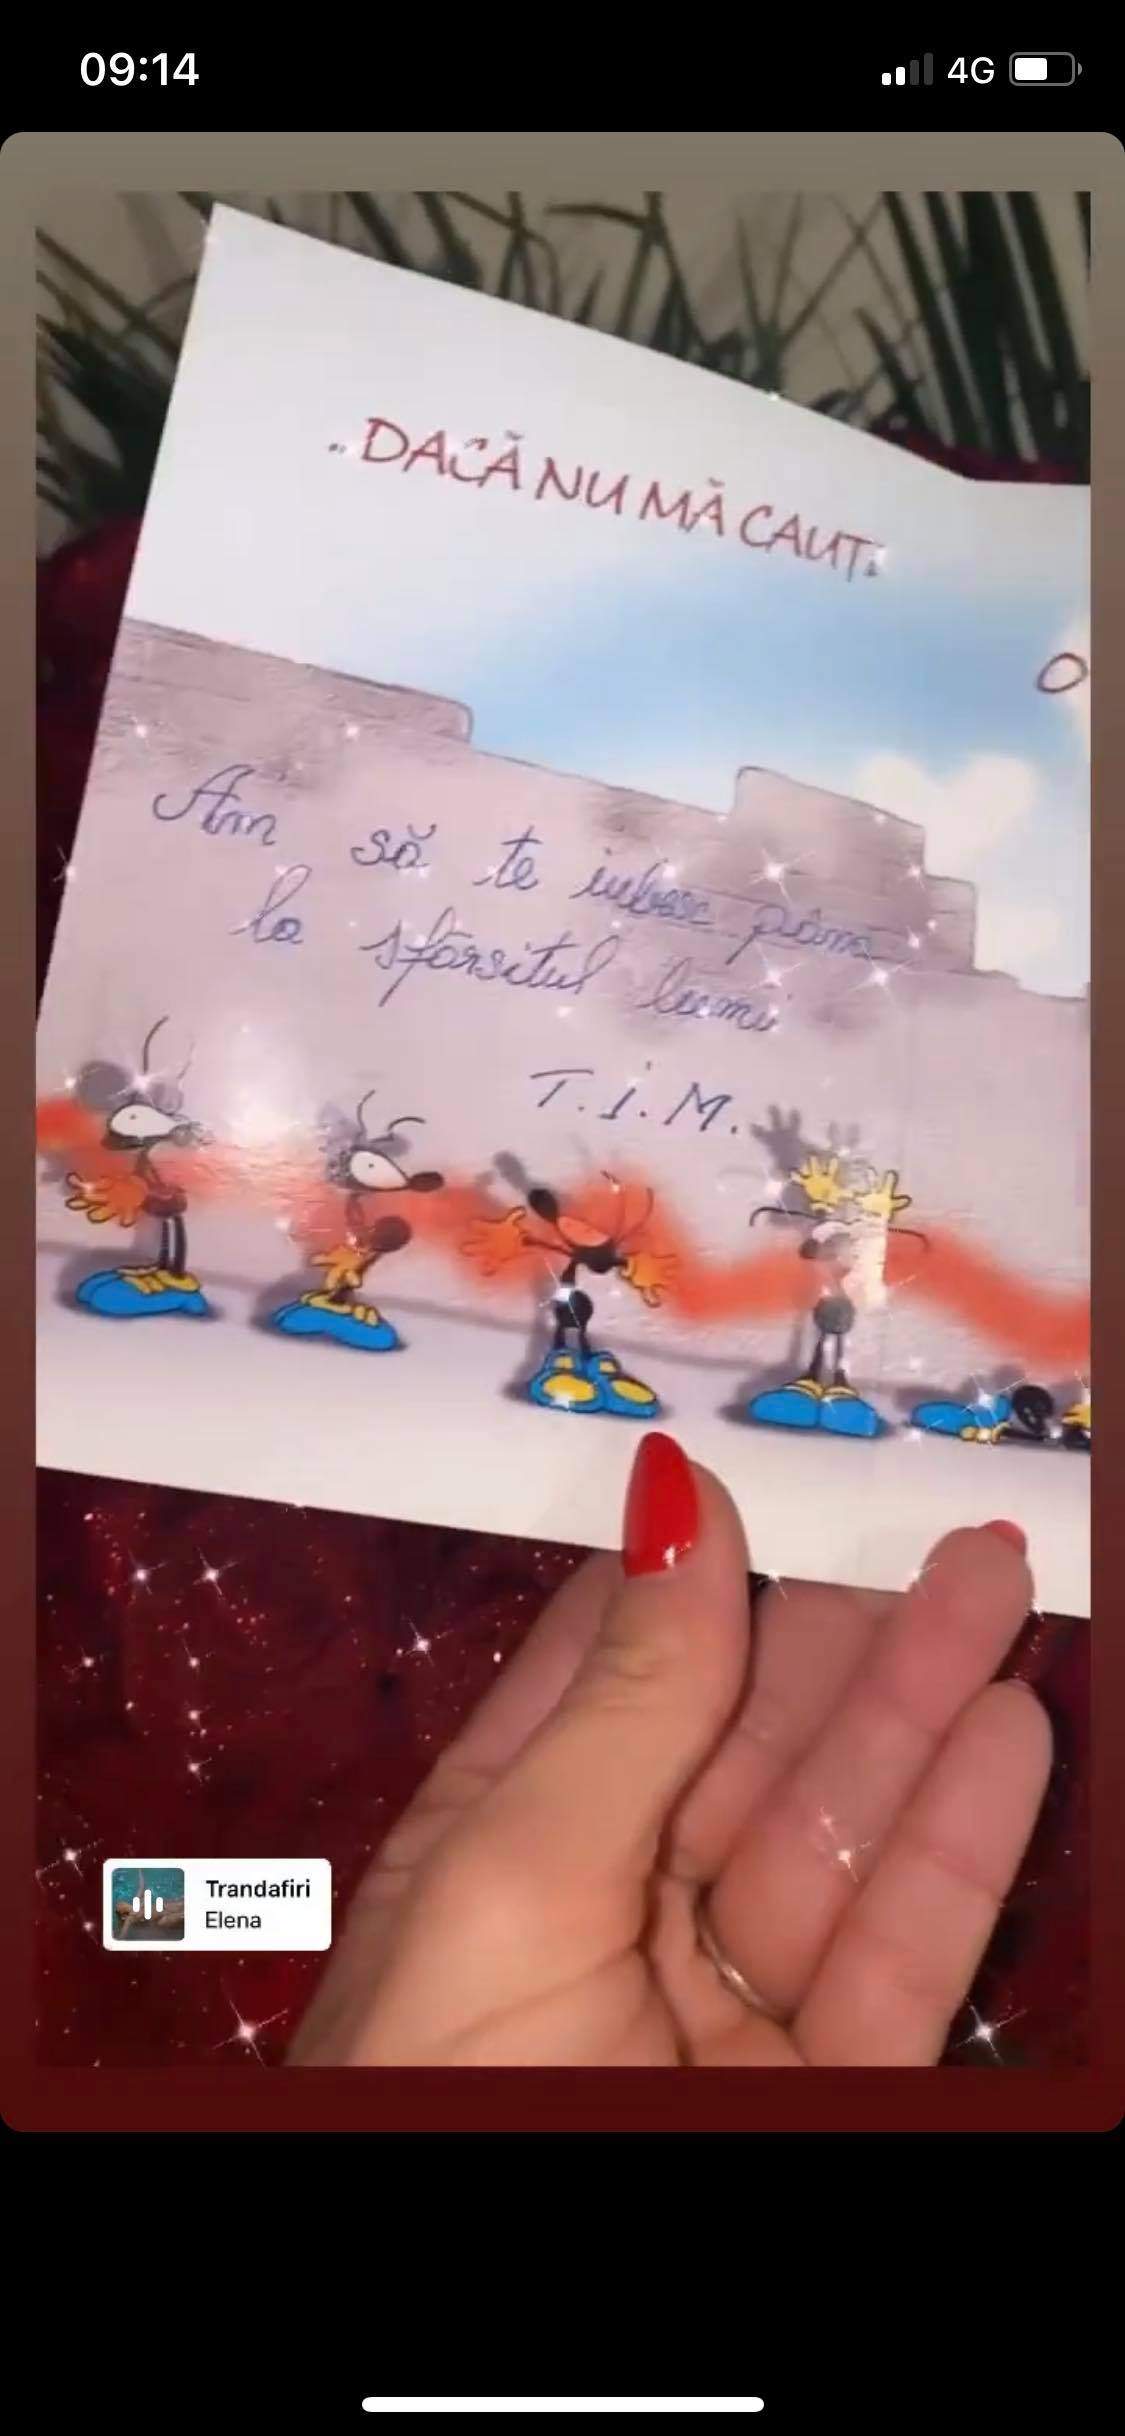 09:14
4G
..DACĂ NU MĂ CAUȚI
O
Am să te iubesc până
la sfârsitul lumi
T.I.M.
Trandafiri
Elena